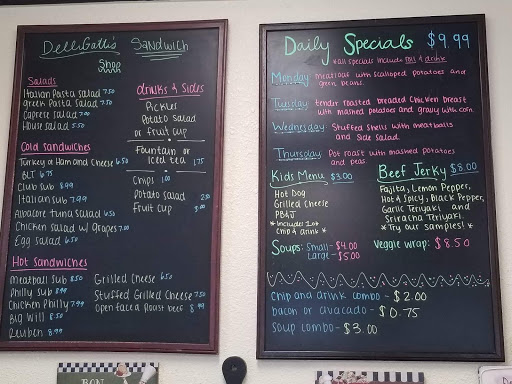 DelliGatti's Sandwich
Shop
Salads
Italian Pasta Salad 7.50
Greek Pasta Salad 7.50
Caprese Salad 7.00
House Salad 5.50
Cold Sandwiches
Turkey or Ham and Cheese 6.50
BLT 6.75
Club Sub 8.99
Italian Sub 7.99
Albacore tuna Salad 6.50
Chicken Salad w/ Grapes 7.00
Egg Salad 6.50
Hot Sandwiches
Meatball Sub 8.50
Philly Sub 8.99
Chicken Philly 7.99
Big Will 8.50
Reuben 8.99
Grilled Cheese 6.50
Stuffed Grilled Cheese 7.50
Open Faced Roast beef 8.99
drinks & Sides
Pickles
Potato Salad
or fruit cup
Fountain or
iced tea 1.75
Chips 1.00
Potato Salad 2.50
Fruit Cup
Daily Specials $9.99
*All specials include roll & drink
Monday meatloaf with scalloped potatoes and
green beans.
Tuesday tender roasted breaded chicken breast
with mashed potatoes and gravy with corn
Wednesday Stuffed Shells with meatballs
and side salad
Thursday Pot roast with mashed potatoes
and peas
Kids Menu $3.00
Hot Dog
Grilled Cheese
PB&J
*Includes 1oz
Chip & drink *
Beef Jerky $8.00
Fajita, Lemon Pepper,
Hot & Spicy, Black Pepper,
Garlic Teriyaki and
Sriracha Teriyaki.
*Try our samples! *
Soups: Small- $4.00
Large - $5.00
Veggie wrap: $8.50
Chip and drink combo - $2.00
bacon or avacado - $0.75
Soup combo - $3.00
BON